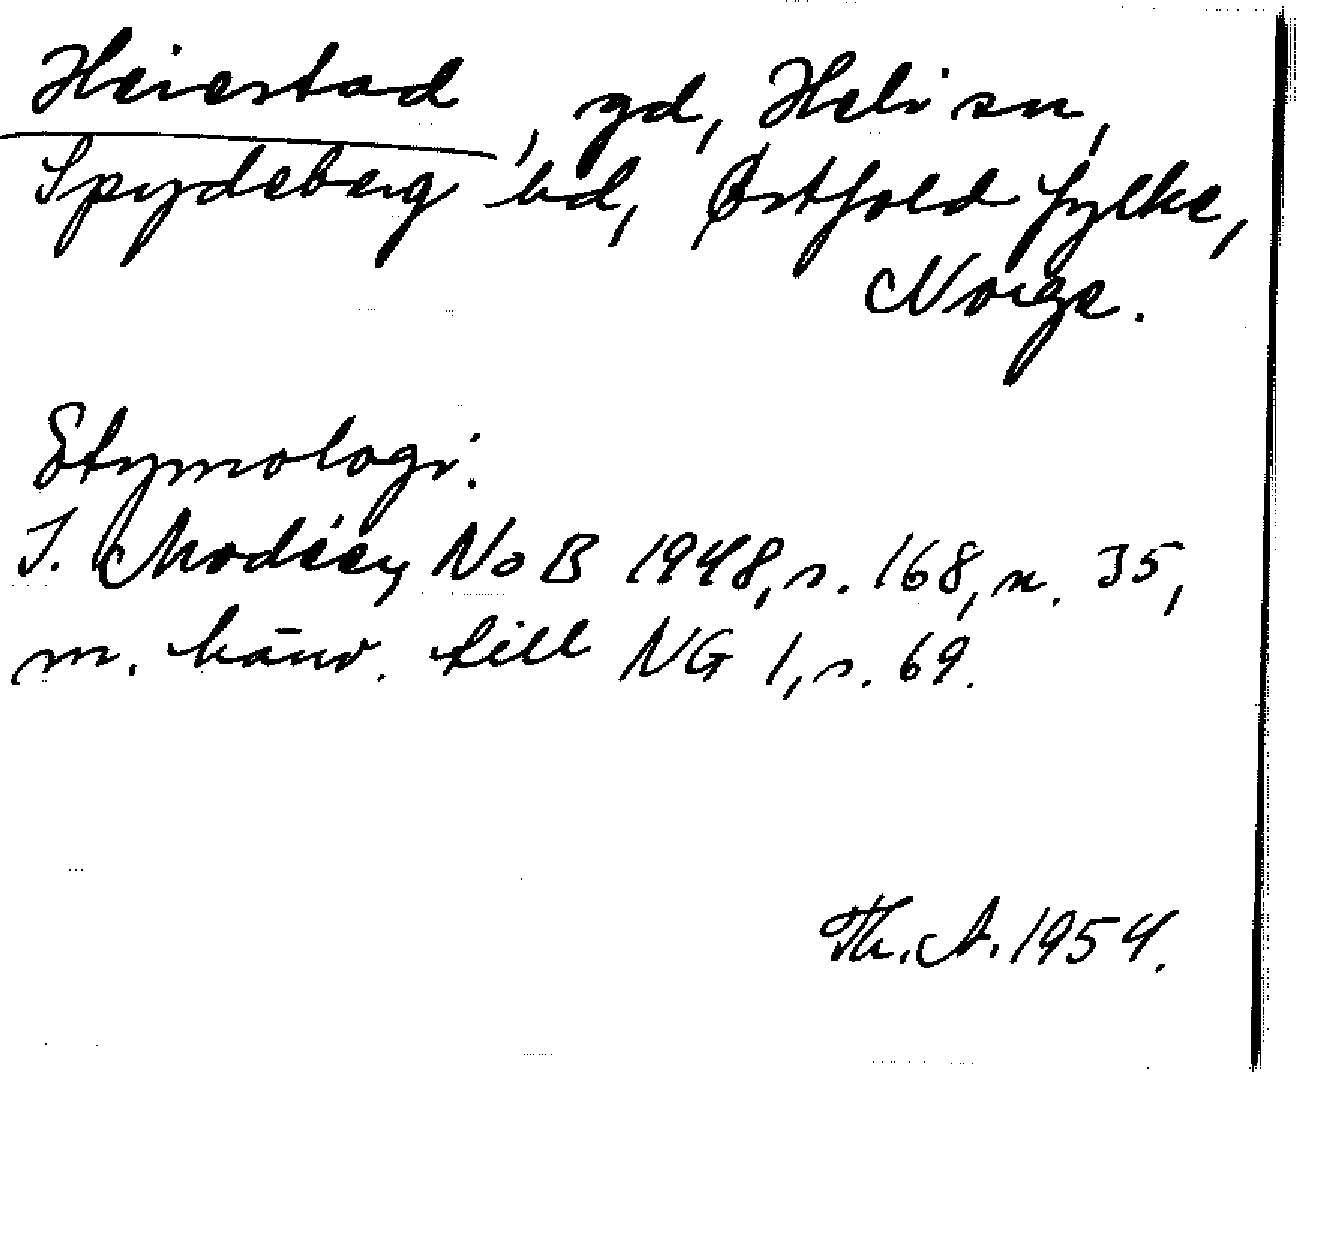 Heiestad, gd, Heli sn,
Spydeberg hd, Østfold fylke,
Norge.
Etymologi:
I. Modéer, NoB 1948, s. 168, n. 35,
m. hänv. till NG 1, s. 69.
Th. A. 1954.